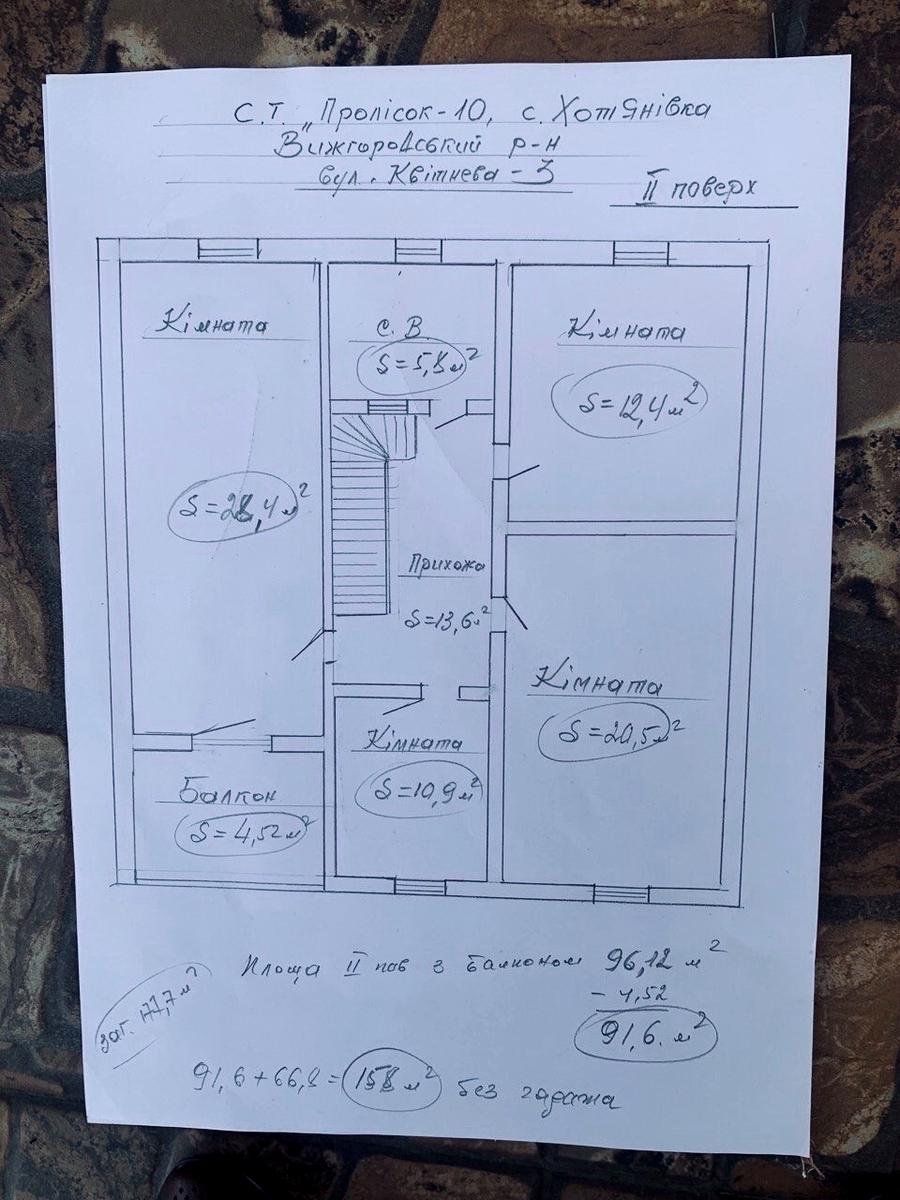 С.Т. „Пролісок-10, с. Хотянівка
Вижгородський р-н
вул. Квітнева - 3
II поверх
Кімната
S=28,4 м²
С. В.
S=5,8 м²
Кімната
S=12,4 м²
Прихожа
S=13,6 м²
Кімната
S=20,5 м²
Кімната
S=10,9 м²
Балкон
S=4,52 м²
Площа II пов з балконом 96,12 м²
- 4,52
91,6. м²
заг. 177,7 м²
91,6+66,8=158 м² без гаража